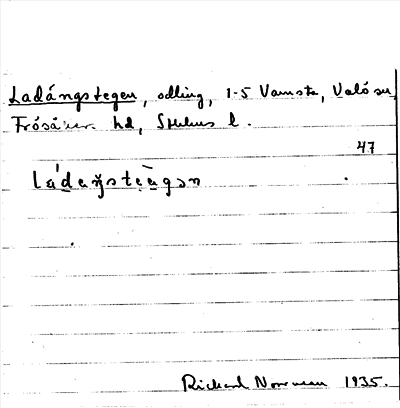 Ladängstegen, odling, 1-5 Vamsta, Valö sn,
Frösåkers hd, Sthlms l.
47
la`daŋste̱gən
Richard Norrman 1935.